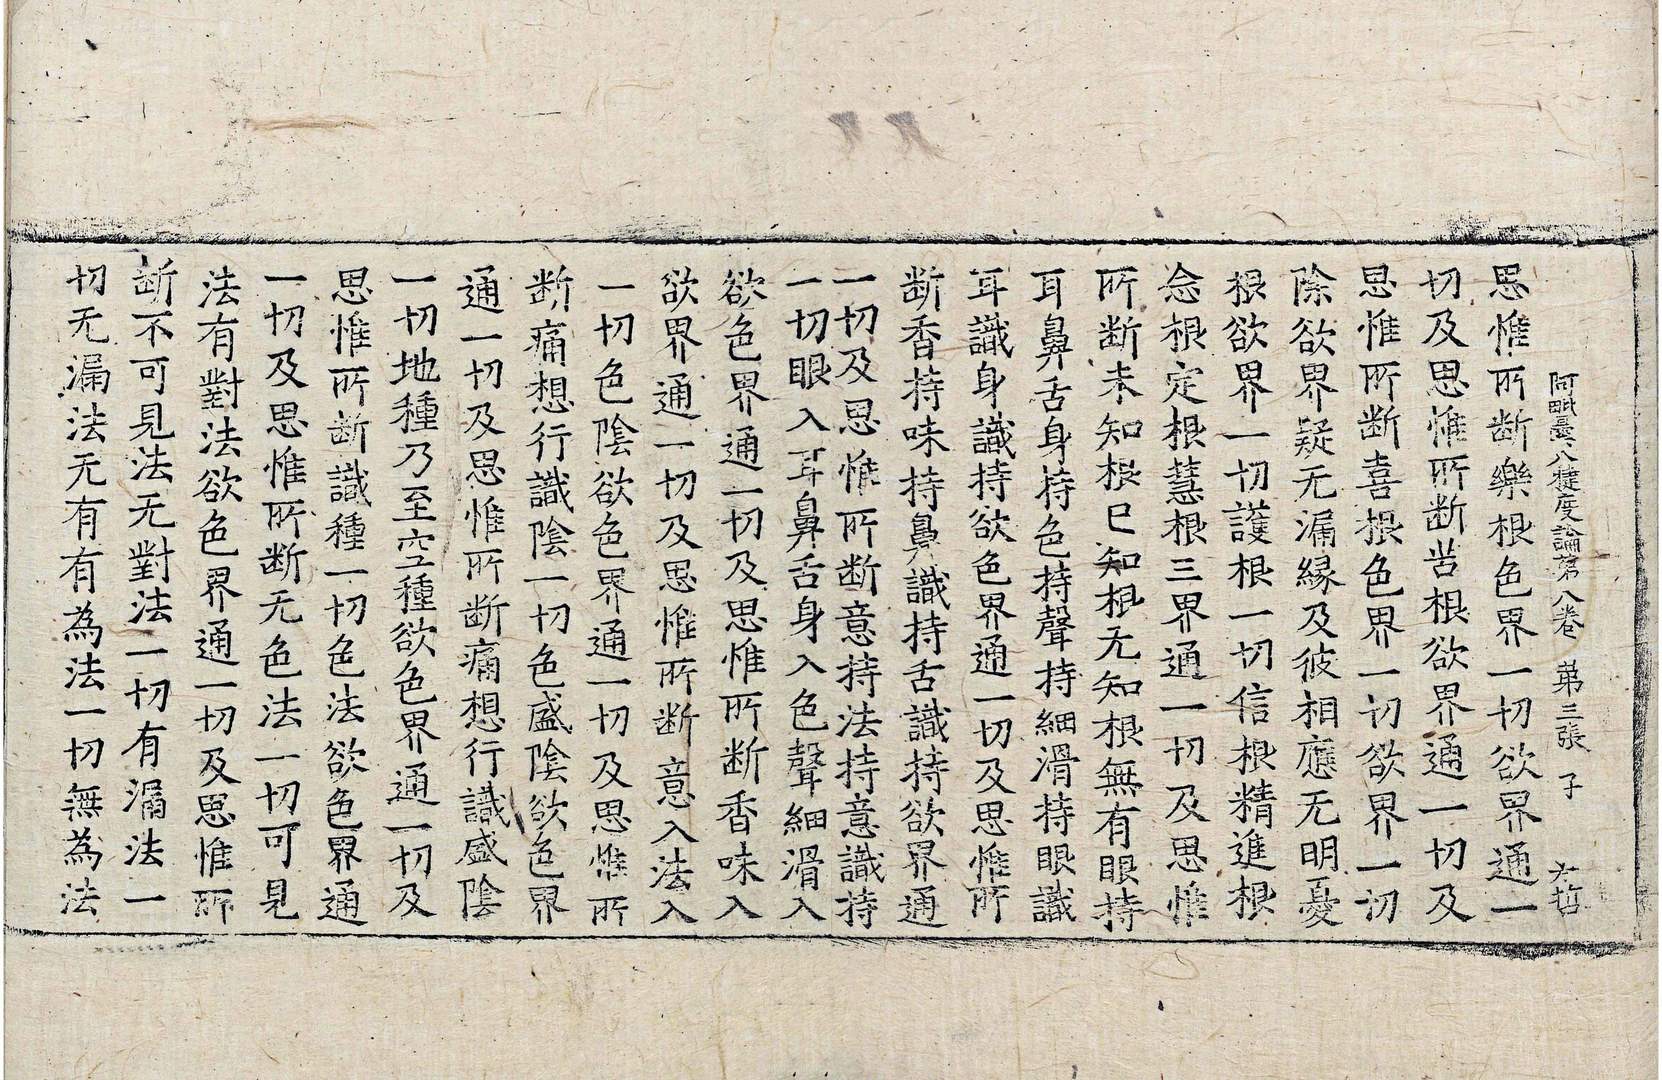 阿毗曇八犍度論第八卷 第三張 子
思惟所断樂根色界一切欲界通一
切及思惟所断苦根欲界通一切及
思惟所断喜根色界一切欲界一切
除欲界疑无漏縁及彼相應无明憂
根欲界一切護根一切信根精進根
念根定根慧根三界通一切及思惟
所断未知根已知根无知根無有眼持
耳鼻舌身持色持聲持細滑持眼識
耳識身識持欲色界通一切及思惟所
断香持味持鼻識持舌識持欲界通
一切及思惟所断意持法持意識持
一切眼入耳鼻舌身入色聲細滑入
欲色界通一切及思惟所断香味入
欲界通一切及思惟所断意入法入
一切色陰欲色界通一切及思惟所
断痛想行識陰一切色盛陰欲色界
通一切及思惟所断痛想行識盛陰
一切地種乃至空種欲色界通一切及
思惟所断識種一切色法欲色界通
一切及思惟所断无色法一切可見
法有對法欲色界通一切及思惟所
断不可見法无對法一切有漏法一
切无漏法无有有為法一切無為法